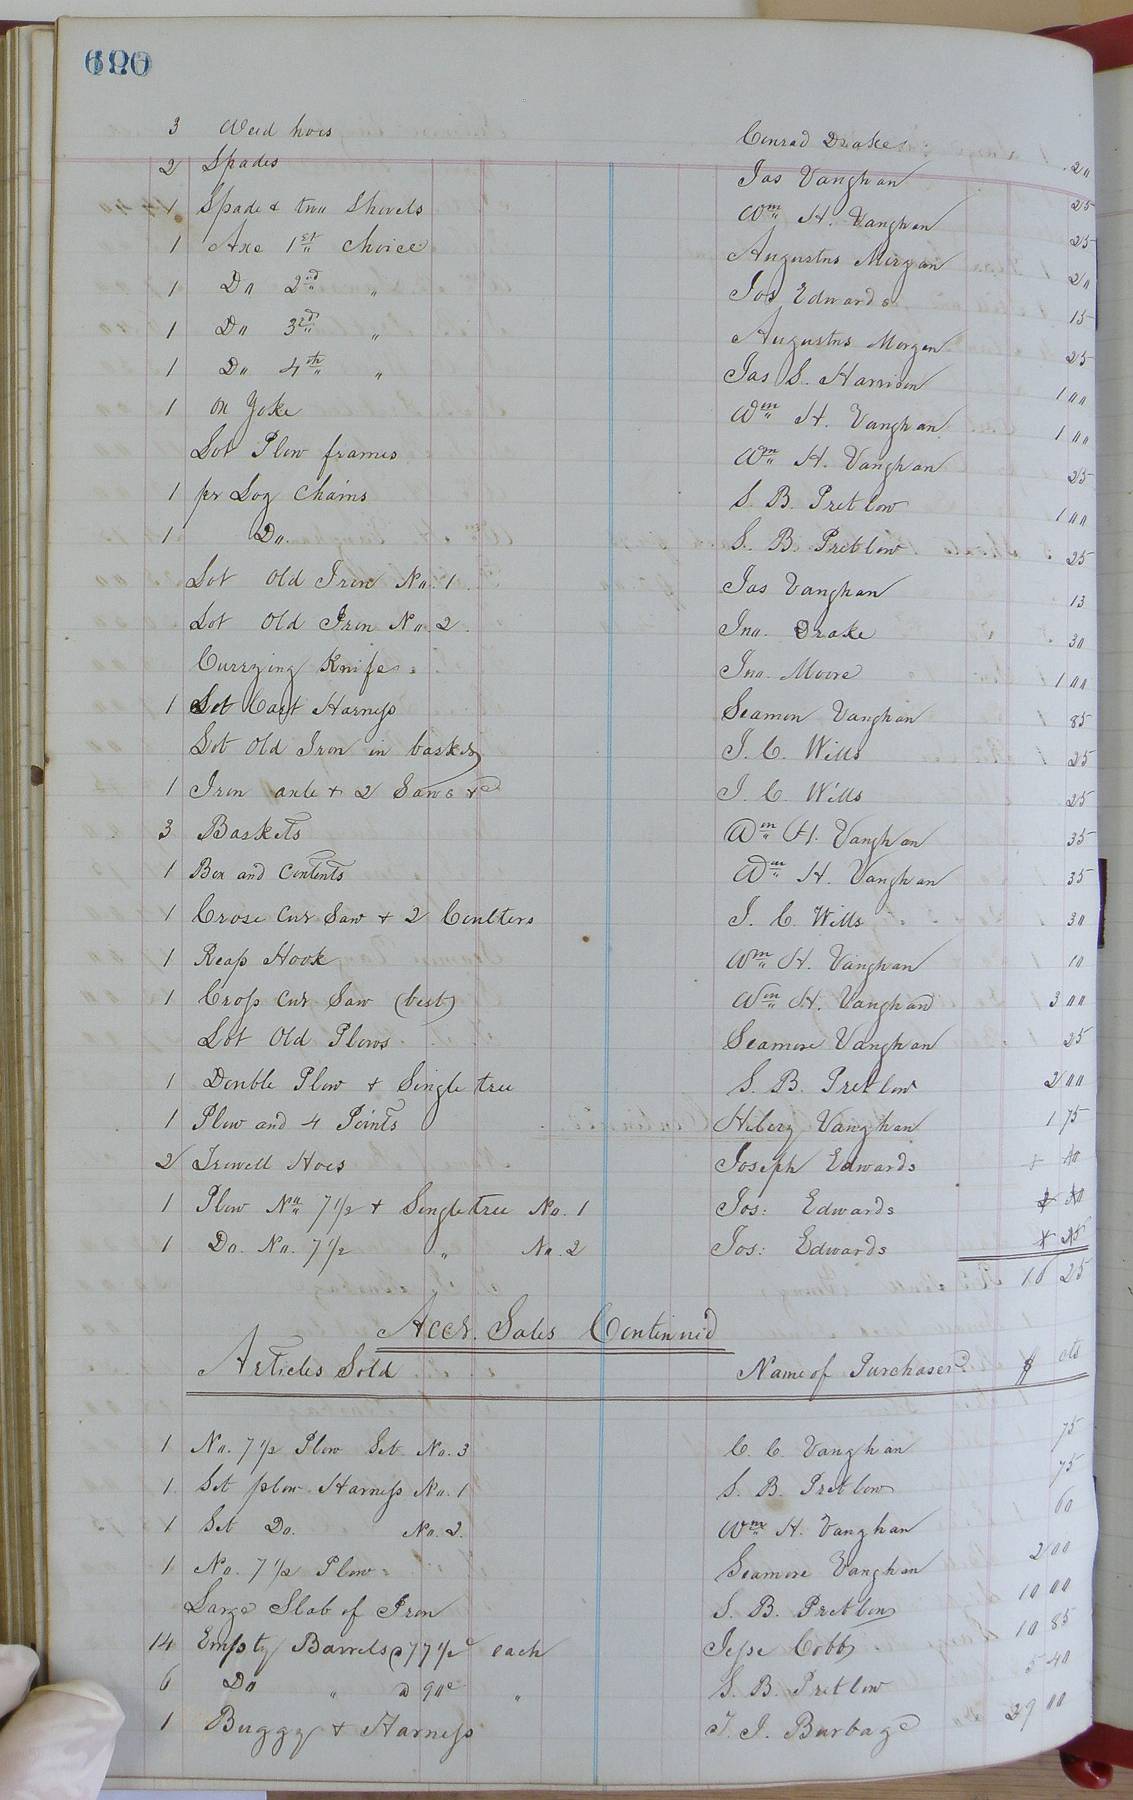 3 Weed hoes Conrad Drake 20
2 Spades Jas Vaughan 25
1 Spade & two Shovels Wm H. Vaughan 25
1 Axe 1st Choice Augustus Morgan 20
1 Do 2nd " Jos Edwards 15
1 Do 3rd " Augustus Morgan 25
1 Do 4th " Jas S. Harrison 1 00
1 Ox Yoke Wm H. Vaughan 1 00
Lot Plow frames Wm H. Vaughan 25
1 pr Log Chains S. B. Pretlow 1 00
1 Do. S. B. Pretlow 25
Lot Old Iron No. 1 Jas Vaughan 13
Lot Old Iron No. 2 Jno. Drake 30
Currying Knife Jno. Moore 1 00
1 Set Cart Harness Seamon Vaughan 85
Lot Old Iron in basket J. C. Wills 25
1 Iron axle & 2 Saws &c J. C. Wills 25
3 Baskets Wm H. Vaughan 35
1 Box and Contents Wm H. Vaughan 35
1 Cross Cut Saw & 2 Coulters J. C. Wills 30
1 Reap Hook Wm H. Vaughan 10
1 Cross Cut Saw (best) Wm H. Vaughan 3 00
Lot Old Plows Seamore Vaughan 25
1 Double Plow & Single tree S. B. Pretlow 2 00
1 Plow and 4 Points Vaughan 1 75
2 Trowell Hoes Joseph Edwards
1 Plow No. 7 1/2 & Singletree No. 1 Jos: Edwards
1 Do. No. 7 1/2 " No. 2 Jos: Edwards
16 25
Acct. Sales Continu'd
Articles Sold Name of Purchaser $ cts
1 No. 7 1/2 Plow Set No. 3 C. C. Vaughan 75
1 Set plow Harness No. 1 S. B. Pretlow 75
1 Set Do. No. 2. Wm H. Vaughan 60
1 No. 7 1/2 Plow Seamore Vaughan 2 00
Large Slab of Iron S. B. Pretlow 10 00
14 Empty Barrels @ 77 1/2c each Jesse Cobb 10 85
6 Do " a 90c " S. B. Pretlow 5 40
1 Buggy & Harness T. J. Burbage 29 00